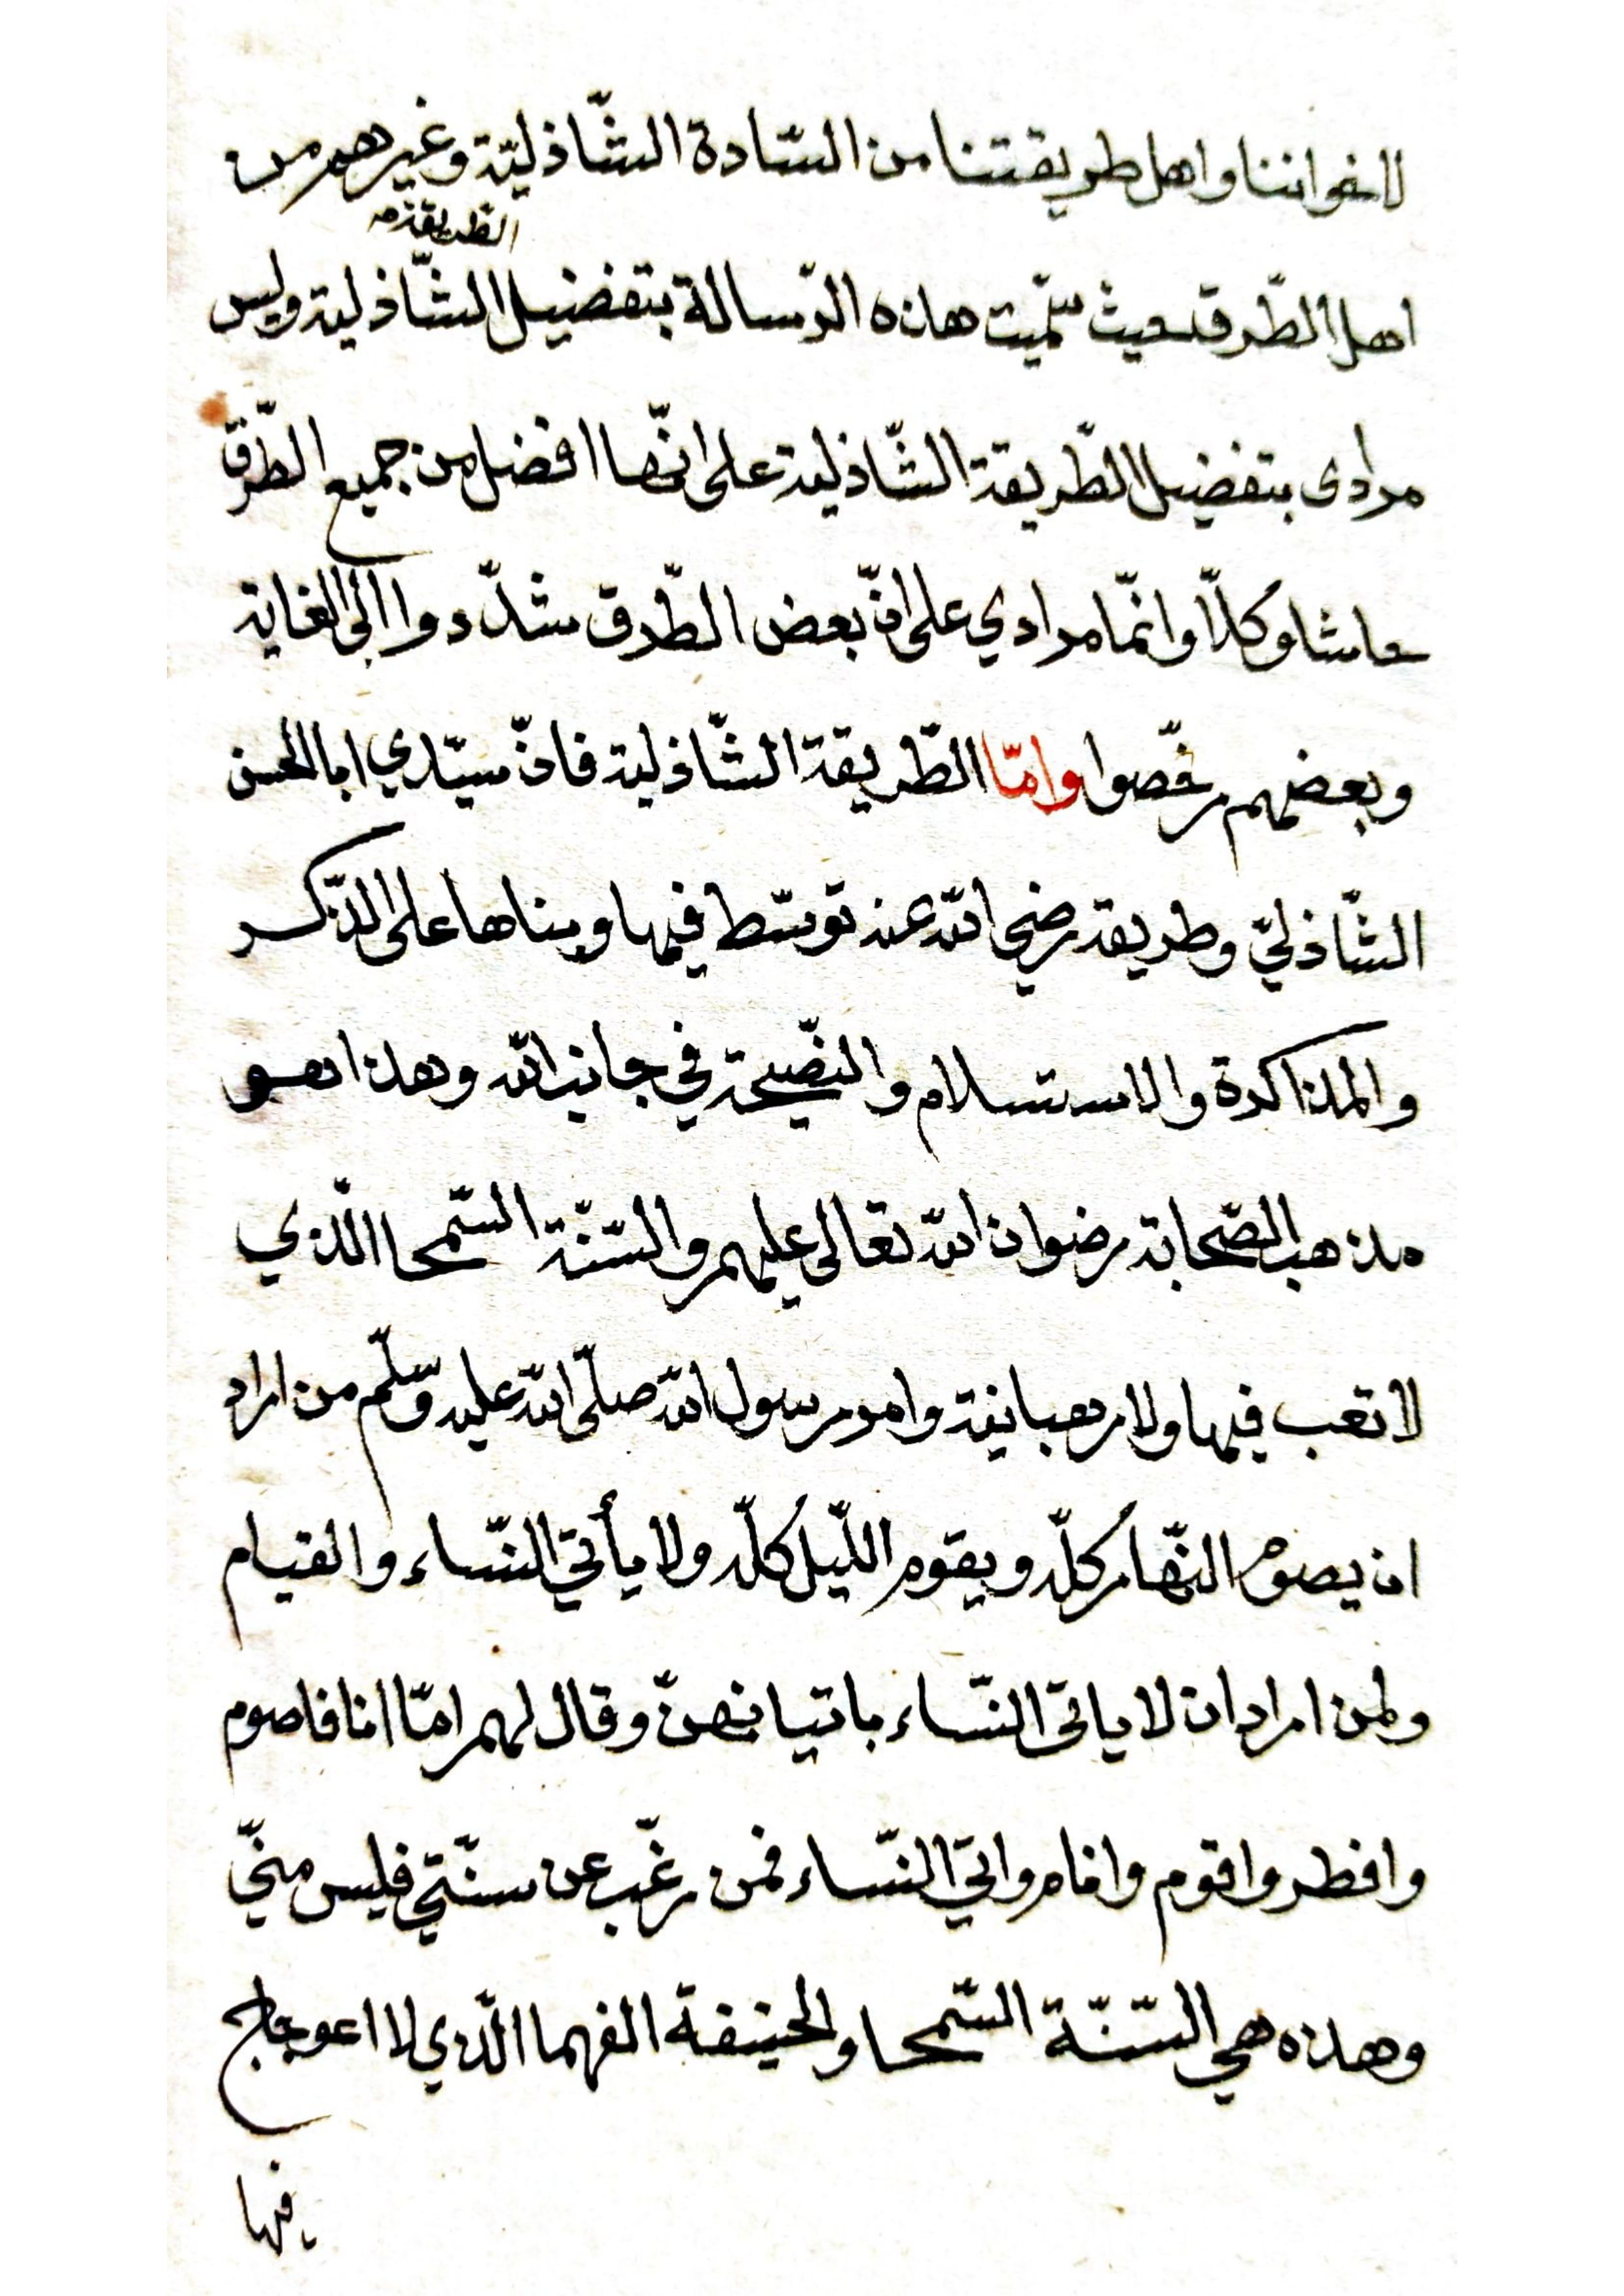 لاخواننا واهل طريقتنا من السّادة الشّاذليّة وغيرهم من
الطريقة
اهل الطّرق حيث سمّيت هذه الرّسالة بتفضيل الشّاذلية وليس
مرادى بتفضيل الطّريقة الشّاذلية على انّها افضل من جميع الطّرق
حاشا وكلّا وانّما مرادي على انّ بعض الطّرق شدّدوا الى الغاية
وبعضهم رخّصوا وامّا الطّريقة الشّاذلية فانّ سيّدي ابا الحسن
الشّاذليّ وطريقه رضي الله عنه توسّط فيها وبناها على الذّكر
والمذاكرة والاستسلام والنّصيحة في جانب الله وهذا هو
مذهب الصّحابة رضوان الله تعالى عليهم والسّنّة السّمحا الّذي
لا تعب فيها ولا رهبانية وامر رسول الله صلّى الله عليه وسّلم من اراد
ان يصوم النّهار كلّه ويقوم اللّيل كلّه ولا يأتي النّساء والقيام
ولمن اراد ان لا ياتى النّساء باتيانهنّ وقال لهم امّا انا فاصوم
وافطر واقوم وانام واتي النّساء فمن رغّب عن سنّتي فليس منّي
وهذه هي السّنّة السّمحا والحنيفة الفهما الّذي لا اعوجاج
فيها